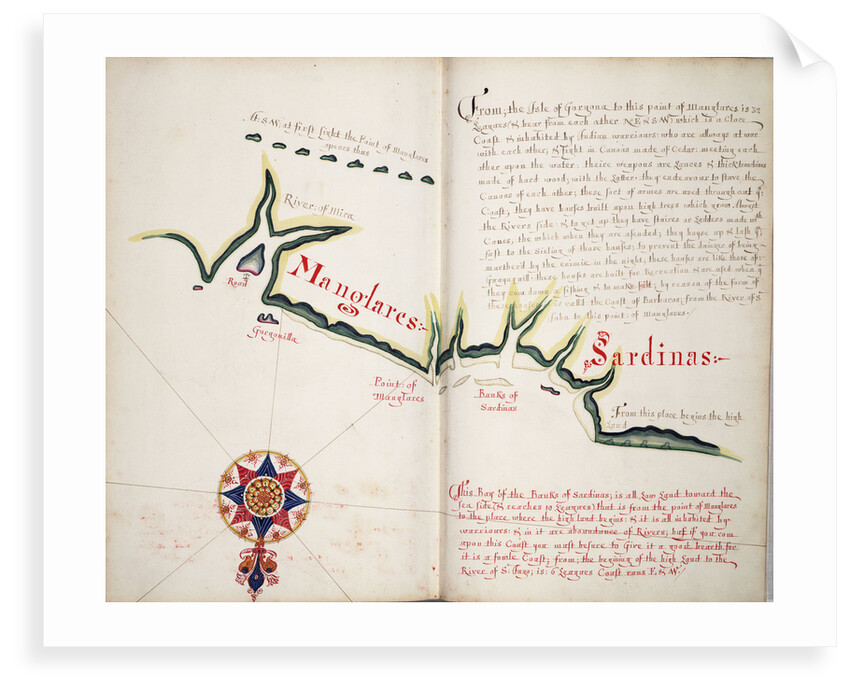 at first sight the Point of Manglares
opens thus
River: of Mira
Road
Manglares:~
Gorgonilla
Point: of
Manglares
Banks of
Sardinas
Sardinas:~
From this place begins the high
Land
From; the Isle of Gorgona to this point of Manglares is 32
Leagues & bear from each other NE & SW: which is a
Coast & inhabited by Indian warriours: who are allways at warr
with each other; & fight in Canoas made of Cedar: meeting each
other upon the water: theire weapons are Lances &
made of hard wood; with the Latter they endeavour to stave the
Canoas of each other; these sort of armes are used through out ye
Coast, they have houses built upon high trees which grow
the Rivers side: & to get up they have staires or Ladders made wth
Canes, the which when they are
to the of those houses; to prevent the danger of being
murther'd by the enimie in the night; these houses are like those of
these houses are built for Recreation & are used when
they come down a fishing & to make by reason of the form of
houses is calld the Coast of Barbacoa; from the River of S
to this point: of Manglares.
This Bay of the Banks of Sardinas; is all Low Land toward the
sea side (& reaches 10 Leagues) that is from the point of Manglares
to the place where the high land begins: & it is all inhabited by
warriours: & in it are aboundance of Rivers; but if you com
upon this Coast you must be sure to give it a good bearth for
it is a foule Coast; from; the begining of the high Land to the
River of S: Iago; is: 6 Leagues Coast runs E & W.